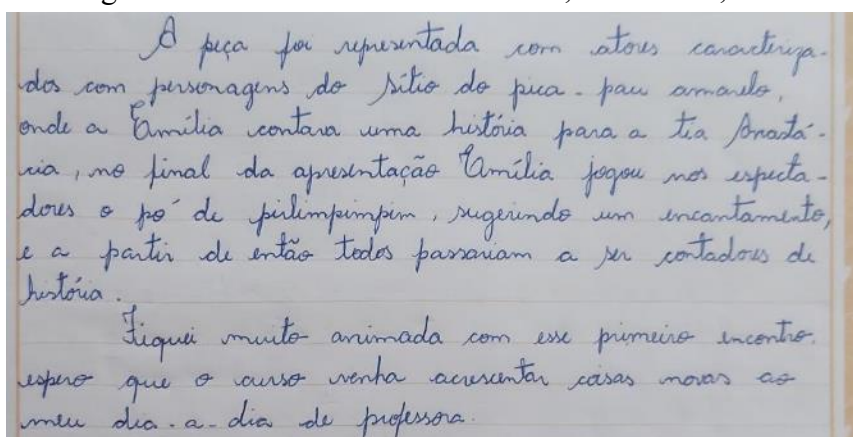 A peça foi representada com atores caracteriza-
dos com personagens do sítio do pica-pau amarelo,
onde a Emília contava uma história para a tia Anastá-
cia, no final da apresentação Emília jogou nos especta-
dores o pó de pirlimpimpim, sugerindo um encantamento,
e a partir de então todos passariam a ser contadores de
história.
Fiquei muito animada com esse primeiro encontro.
espero que o curso venha acrescentar coisas novas ao
meu dia-a-dia de professora.